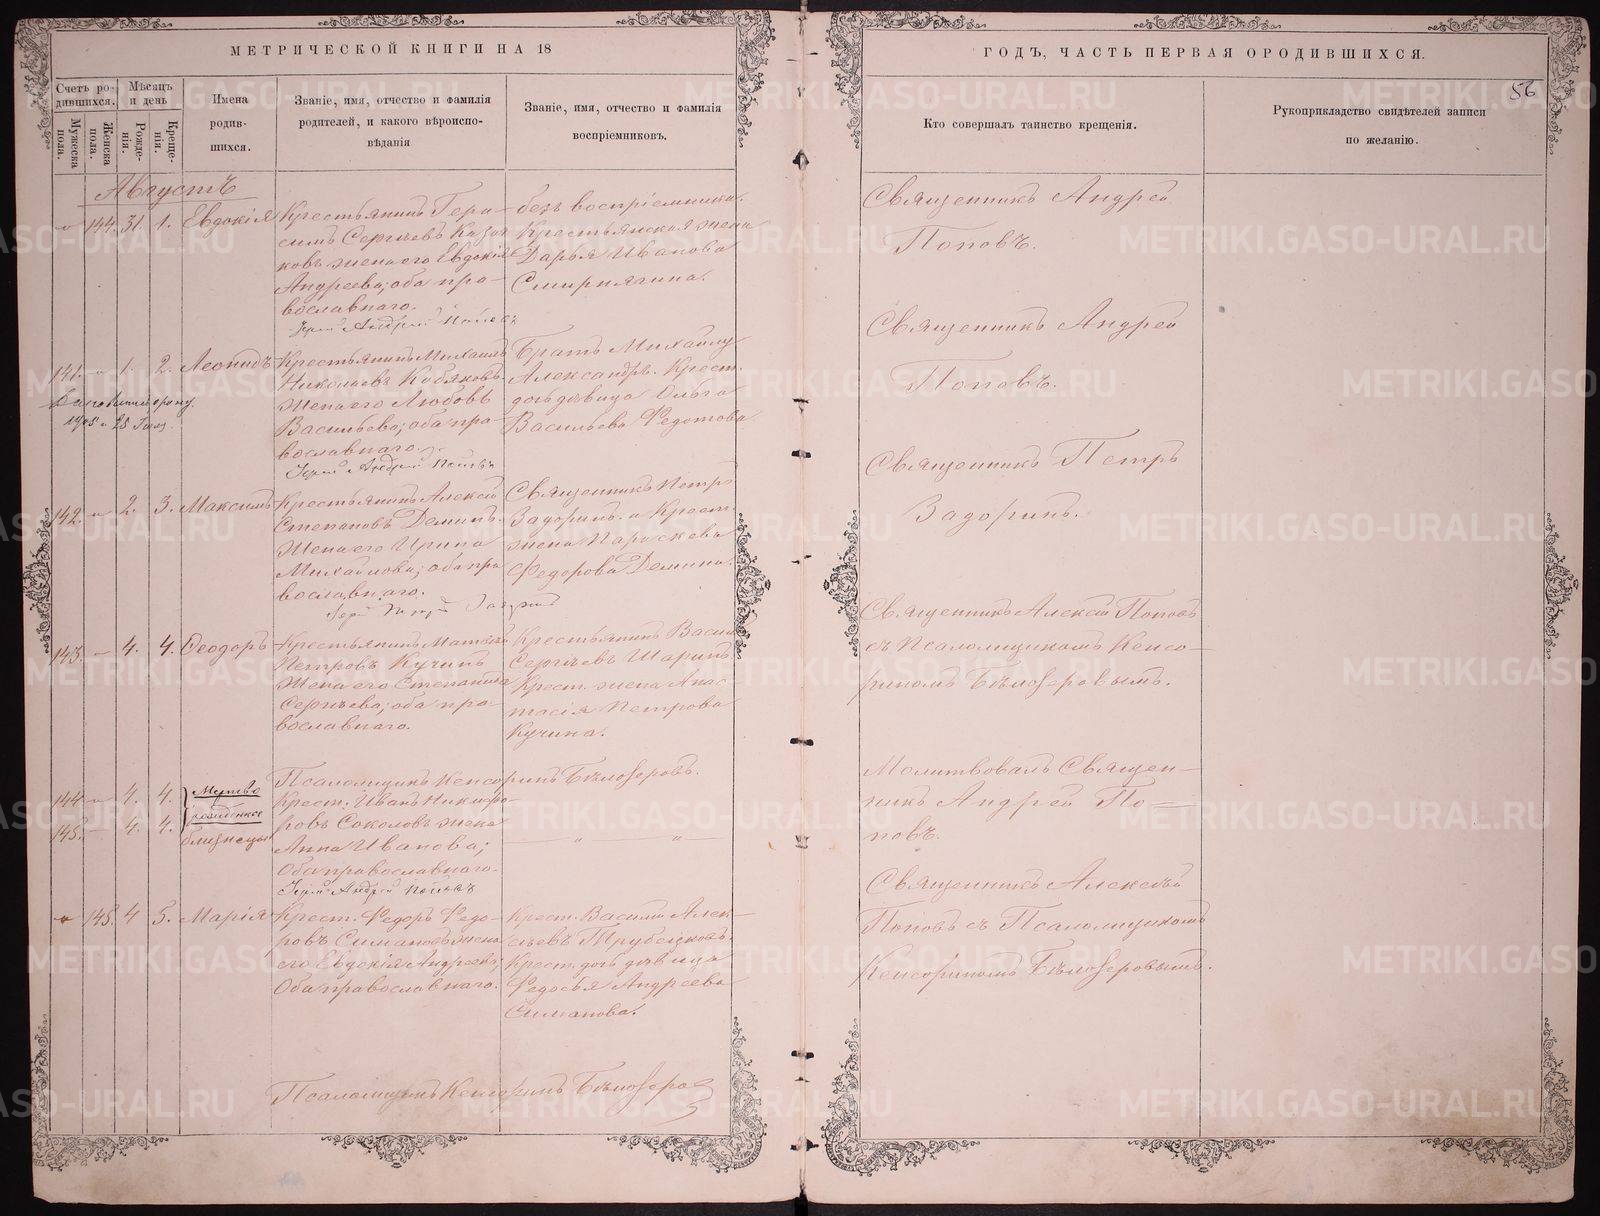 МЕТРИЧЕСКОЙ КНИГИ НА 18
ГОДЪ, ЧАСТЬ ПЕРВАЯ О РОДИВШИХСЯ.
56
Счетъ ро-
дившихся.
Мужеска
пола.
Женска
пола.
Мѣсяцъ
и день
Рожде-
нія.
Креще-
нія.
Имена
родив-
шихся.
Званіе, имя, отчество и фамилія
родителей, и какого вѣроиспо-
вѣданія
Званіе, имя, отчество и фамилія
воспріемниковъ.
Кто совершалъ таинство крещенія.
Рукоприкладство свидѣтелей записи
по желанію.
Августъ
144. 31. 1. Евдокія
Крестьянинъ Гера-
симъ Сергѣевъ Казак
ковъ жена его Евдокія
Андреева; оба пра-
вославнаго.
Іерей Андрей Поповъ
безъ воспріемника.
Крестьянская жена
Дарья Иванова
Смирнягина.
Священникъ Андрей
Поповъ.
141. - 1. 2. Леонидъ
Крестьянинъ Михаилъ
Николаевъ Кобяковъ
жена его Любовь
Васильева; оба пра-
вославнаго.
Іерей Андрей Поповъ
Братъ Михаилу
Александръ. Крест.
дочь дѣвица Ольга
Васильева Федотова
Священникъ Андрей
Поповъ.
142. - 2. 3. Максимъ
Крестьянинъ Алексій
Степановъ Деминъ.
Жена его Ирина
Михайлова; оба пра
вославнаго.
Іерей Петръ Задоринъ
Священникъ Петръ
Задоринъ. и Крест.
жена Параскева
Федорова Демина.
Священникъ Петръ
Задоринъ.
143. - 4. 4. Ѳеодоръ
Крестьянинъ Матвѣй
Петровъ Кучинъ
Жена его Степанида
Сергѣева; оба пра-
вославнаго.
Крестьянинъ Васил
Сергѣевъ Шаринъ
Крест. жена Анас-
тасія Петрова
Кучина.
Священникъ Алексій Поповъ
съ Псаломщикомъ Кенсо-
риномъ Бѣлозеровымъ.
Псаломщикъ Кенсоринъ Бѣлозеровъ.
144 - 4. 4.
145. - 4. 4.
Мертво
рожденные
близнецы
Крест. Иванъ Никифо-
ровъ Соколовъ жена
Анна Иванова;
Оба православнаго.
Іерей Андрей Поповъ
Молитвовалъ Священ-
никъ Андрей По-
повъ.
145. 4 5. Марія
Крест. Федоръ Федо-
ровъ Симановъ жена
его Евдокія Андреева;
Оба православнаго.
Крест. Василій Алек-
сѣевъ Трубецковъ.
Крест. дочь дѣвица
Федосья Андреева
Симанова.
Священникъ Алексѣй
Поповъ съ Псаломщикомъ
Кенсориномъ Бѣлозеровымъ.
Псаломщикъ Кенсоринъ Бѣлозеров
METRIKI.GASO-URAL.RU